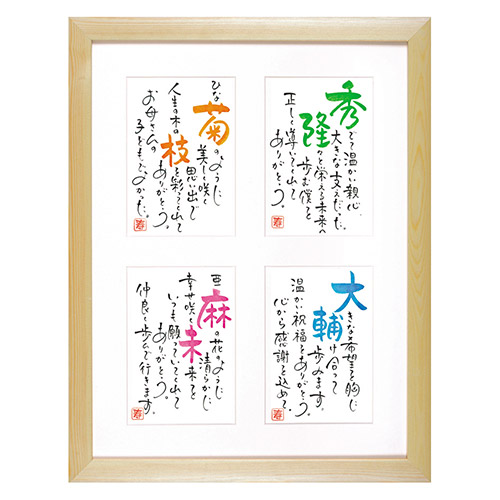 秀でて温かい親心
大きな支えだった。
隆々と栄える未来へ
歩む僕を
正しく導いてくれて
ありがとう。
ひな菊のように
美しく咲く
思い出で
人生の木の枝を彩ってくれて
ありがとう。
お母さんの
子どもで、よかった。
大きな希望を胸に
輔け合って
歩みます。
温かい祝福をありがとう。
心から感謝を込めて。
亜麻の花のように
清らかに
幸せ咲く未来を
いつも願っていてくれて
ありがとう。
仲良く歩んで行きます。